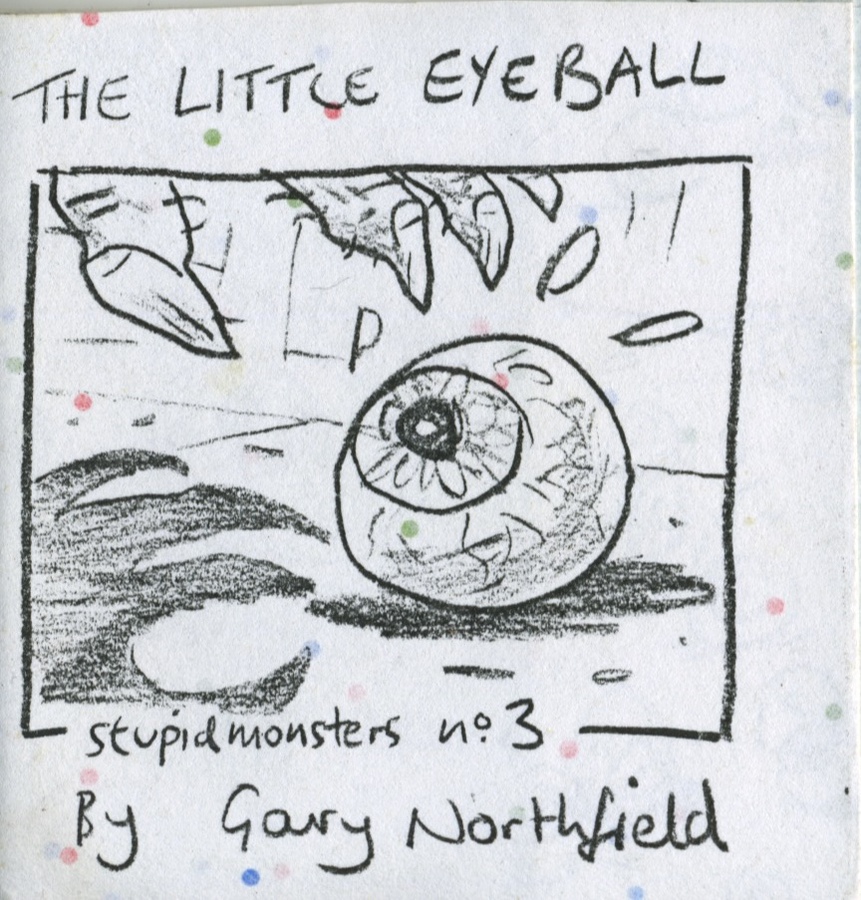 THE LITTLE EYEBALL
stupidmonsters nº 3
By Gary Northfield